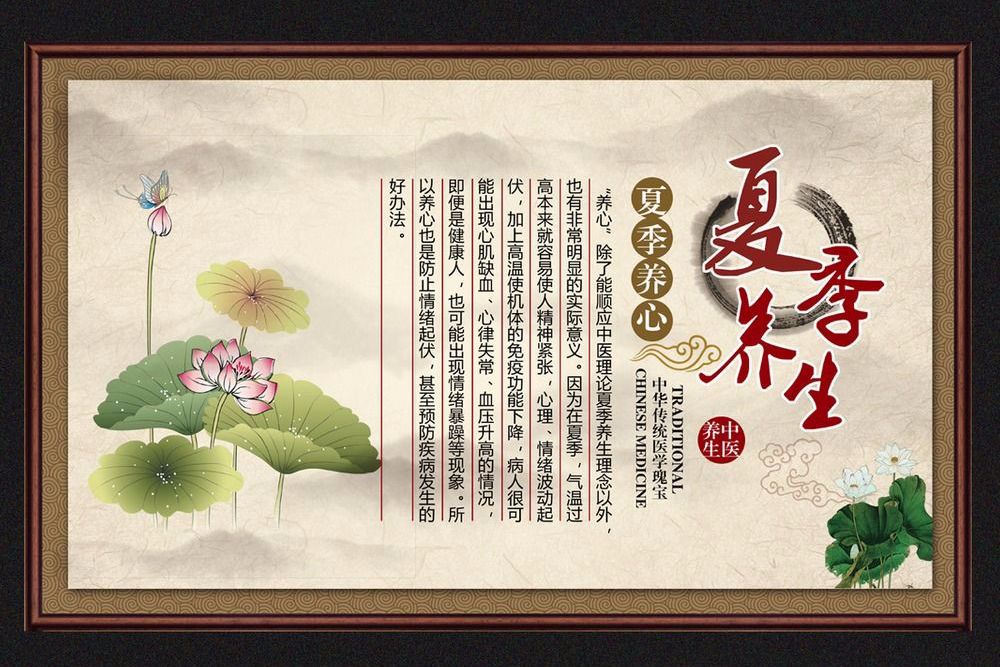 夏季养生
中医
养生
夏季养心
TRADITIONAL
中华传统医学瑰宝
CHINESE MEDICINE
“养心”除了能顺应中医理论夏季养生理念以外，
也有非常明显的实际意义。因为在夏季，气温过
高本来就容易使人精神紧张，心理、情绪波动起
伏，加上高温使机体的免疫功能下降，病人很可
能出现心肌缺血、心律失常、血压升高的情况，
即便是健康人，也可能出现情绪暴躁等现象。所
以养心也是防止情绪起伏，甚至预防疾病发生的
好办法。